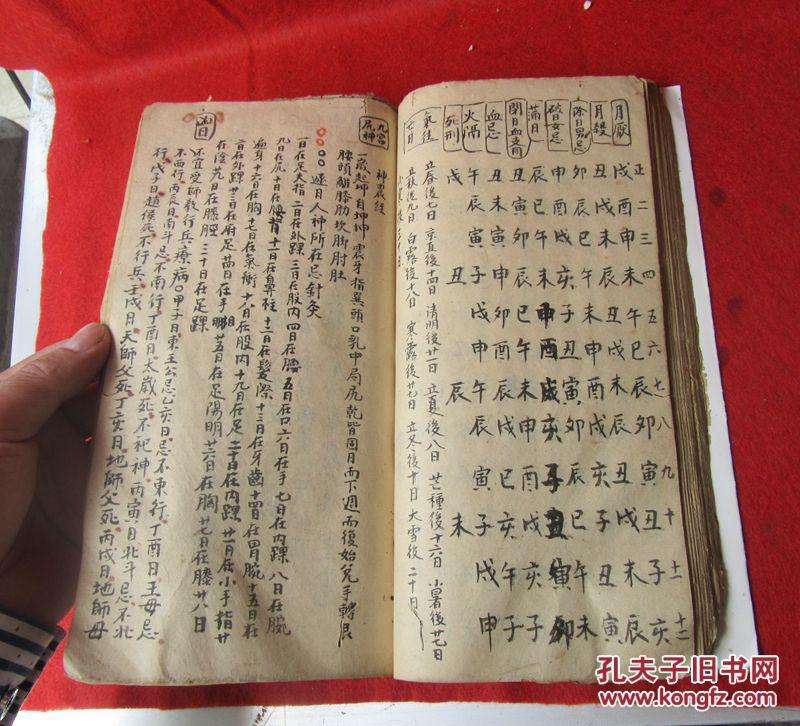 正 二 三 四 五 六 七 八 九 十 十一 十二
月厭 戌 酉 申 未 午 巳 辰 卯 寅 丑 子 亥
月殺 丑 戌 未 辰 丑 戌 未 辰 丑 戌 未 辰
除日男忌 卯 辰 巳 午 未 申 酉 戌 亥 子 丑 寅
破日女忌 申 酉 戌 亥 子 丑 寅 卯 辰 巳 午 未
滿日 辰 巳 午 未 申 酉 戌 亥 子 丑 寅 卯
閉日血支同 丑 寅 卯 辰 巳 午 未 申 酉 戌 亥 子
血忌 丑 未 寅 申 卯 酉 辰 戌 巳 亥 午 子
火隔 午 辰 寅 子 戌 申 午 辰 寅 子 戌 申
死刑 戌 丑 辰 未
立春後七日 京直後十四日 清明後廿一日 立夏後八日 芒種後十六日 小暑後廿七日
立秋後九日 白露後十八日 寒露後廿七日 立冬後十日 大雪後二十日
九宮尻神
神農經
一歲起坤自坤坤 震牙指巽頭口乳中局尻乾背面目而下週而復始兌手轉艮
腰項離膝肋坎脚肘肚
逐日人神所在忌針灸
一日在足大指 二日在外踝 三日在股內 四日在腰 五日在口 六日在手 七日在內踝 八日在腕
九日在尻十日在腰背十一日在鼻柱十二日在髮際十三日在牙齒十四日在胃腕十五日在
遍身十六日在胸十七日在氣衝十八日在股內十九日在足二十日在內踝廿一日在小手指廿
二日在外踝廿三日在肝足廿四日在手陽明廿五日在足陽明廿六日在胸廿七日在膝廿八日
在陰廿九日在膝脛三十日在足踝
不宜受師教行兵療病〇甲子日東王公忌乙亥日忌不東行丁酉日王母忌
不西行丙辰日南斗忌不南行丁酉日太歲死不祀神丙寅日北斗忌不北
行戊子日趙侯死不行兵壬戌日天師父死丁亥日地師父死丙戌日地師母
孔夫子旧书网
www.kongfz.com